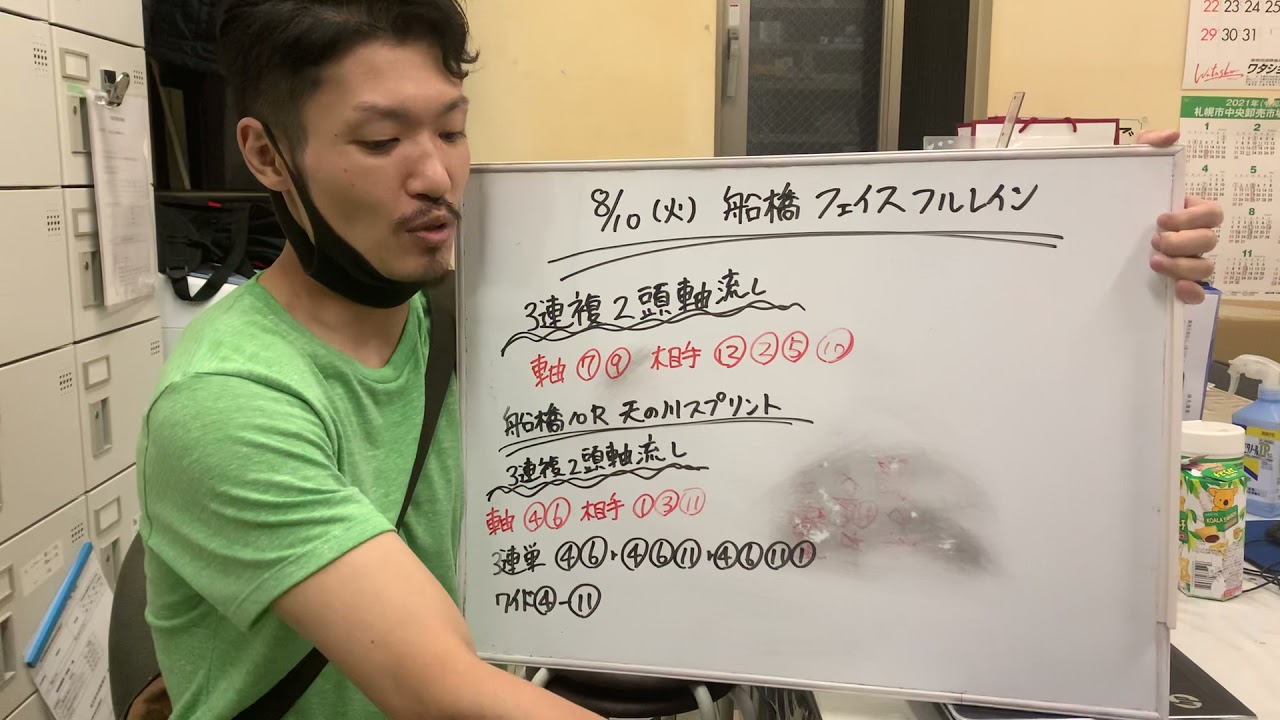 8/10(火) 船橋 フェイスフルレイン
3連複2頭軸流し
軸 ⑦⑨ 相手 ⑫②⑤⑩
船橋10R 天の川スプリント
3連複2頭軸流し
軸 ④⑥ 相手 ①③⑪
3連単 ④⑥,④⑥⑪,④⑥⑪①
ワイド④-⑪
22 23 24 25
29 30 31
Watasho
2021年
札幌市中央卸売市場
1 2
4 5
8
11
KOALA